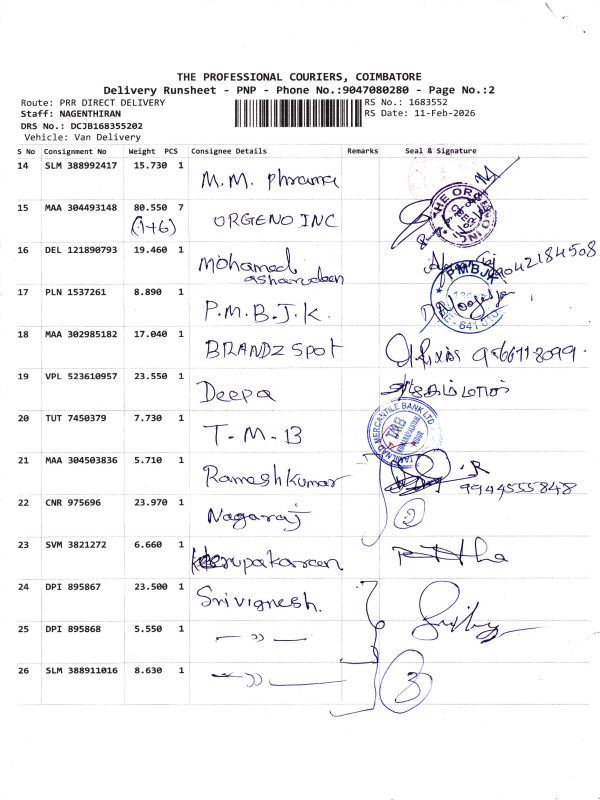 THE PROFESSIONAL COURIERS, COIMBATORE
Delivery Runsheet - PNP - Phone No.:9047080280 - Page No.:2
Route: PRR DIRECT DELIVERY RS No.: 1683552
Staff: NAGENTHIRAN RS Date: 11-Feb-2026
DRS No.: DCJB168355202
Vehicle: Van Delivery
S No Consignment No Weight PCS Consignee Details Remarks Seal & Signature
14 SLM 388992417 15.730 1 M.M. Pharma
15 MAA 304493148 80.550 7 ORGENO INC THE ORGENO INC
(1+6)
16 DEL 121890793 19.460 1 Mohamed 9042184508
asharudeen
17 PLN 1537261 8.890 1 P.M.B.J.K. PMBJK
18 MAA 302985182 17.040 1 BRANDZ SPOT
19 VPL 523610957 23.550 1 Deepa
20 TUT 7450379 7.730 1 T-M-B TAMILNAD MERCANTILE BANK LTD TMB
21 MAA 304503836 5.710 1 Rameshkumar 9944555848
22 CNR 975696 23.970 1 Nagaraj 2
23 SVM 3821272 6.660 1
24 DPI 895867 23.500 1 Srivignesh.
25 DPI 895868 5.550 1 — 〃 —
26 SLM 388911016 8.630 1 — 〃 — 3